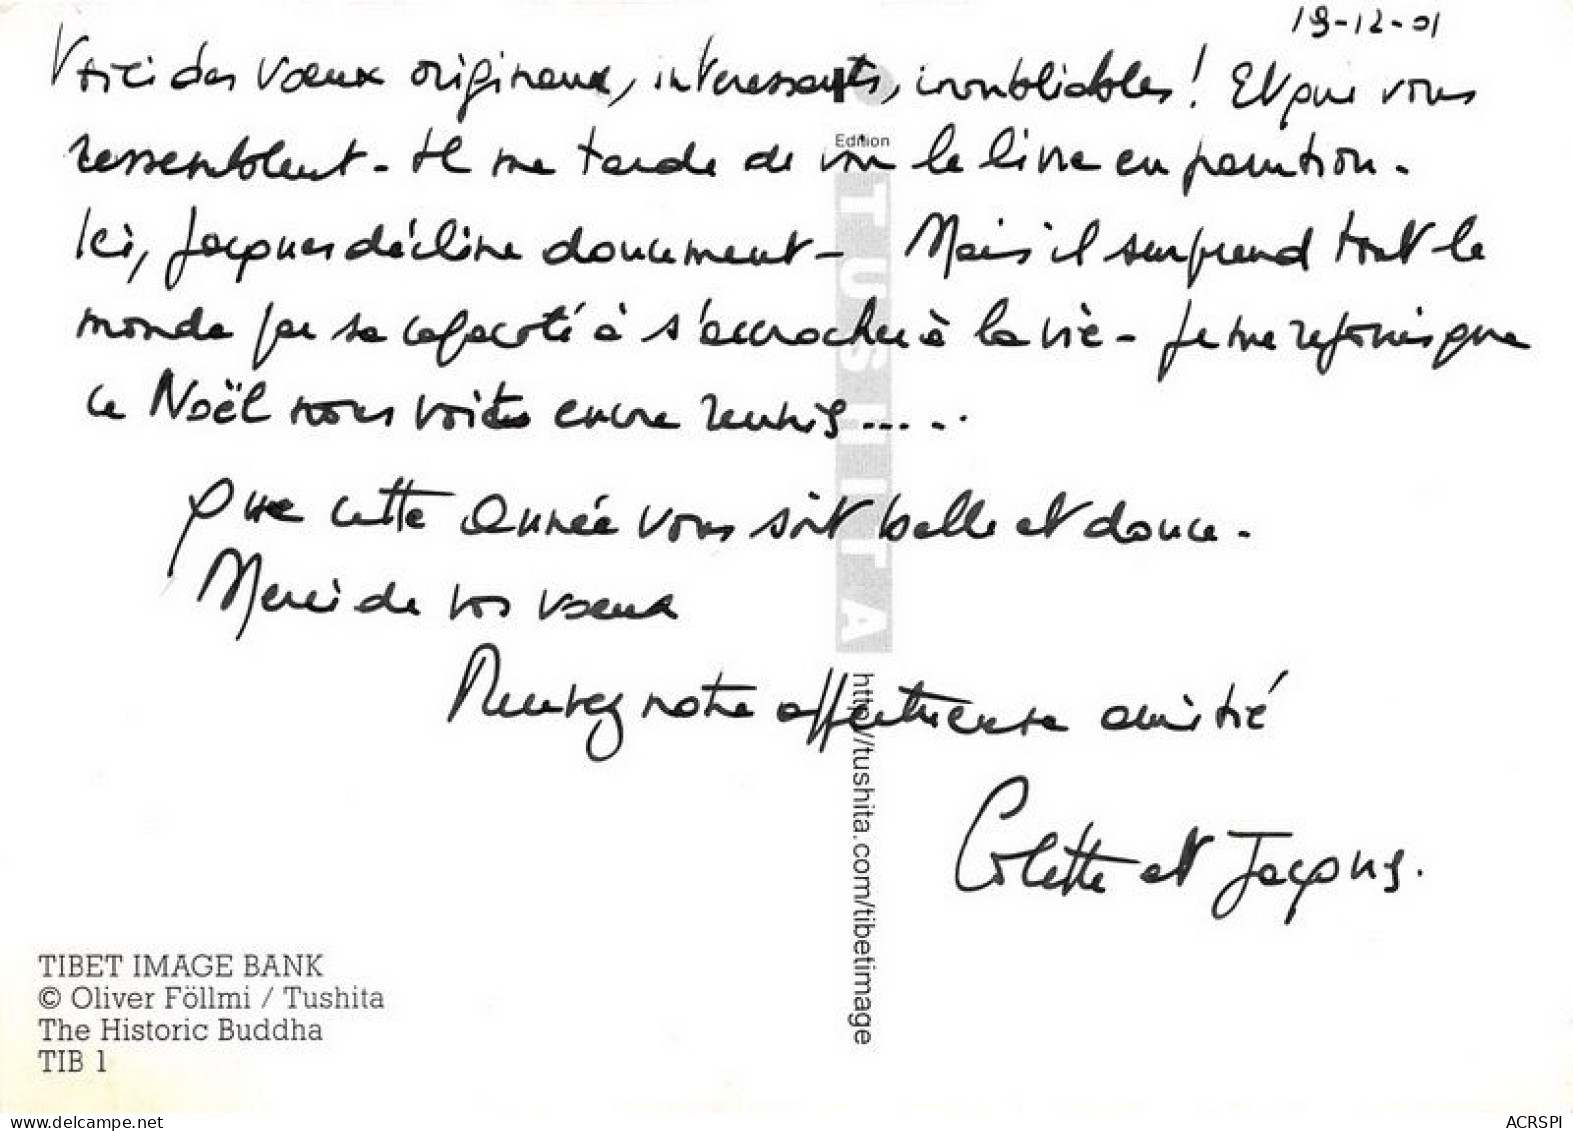 19-12-01
Voici des vœux originaux, intéressants, inoubliables ! Et que vous
ressemblent - Il me tarde de voir le livre en parution.
Ici, Jacques décline doucement - Mais il surprend tout le
monde par sa capacité à s'accrocher à la vie - Je me réjouis que
ce Noël nous voit encore réunis.....
Que cette année vous soit belle et douce.
Merci de vos vœux
Recevez notre affectueuse amitié
Colette et Jacques.
Edition
TUSHITA
http://tushita.com/tibetimage
TIBET IMAGE BANK
© Oliver Föllmi / Tushita
The Historic Buddha
TIB 1
www.delcampe.net
ACRSPI